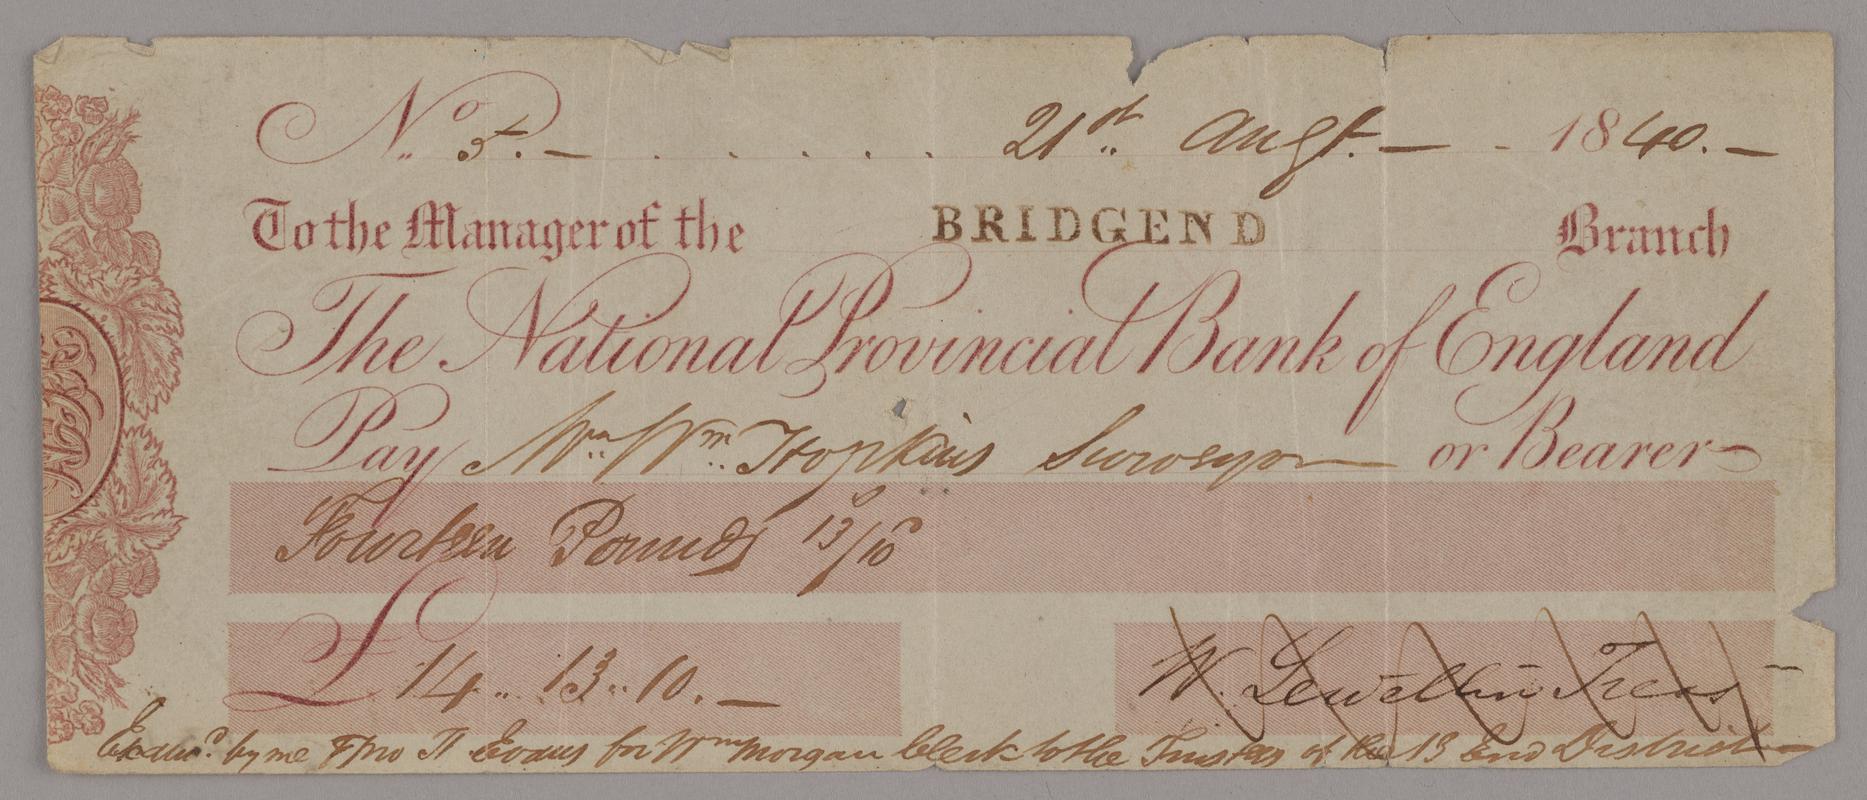 No. 5. — 21st Augt. — 1840. —
To the Manager of the BRIDGEND Branch
The National Provincial Bank of England
Pay Mr. Wm. Hopkins Surveyor or Bearer
Fourteen Pounds 13/10
£ 14 .. 13 .. 10. —
W. Llewellin Treasr
Examd. by me Thos Evans for Wm Morgan Clerk to the Trustees of the B End District